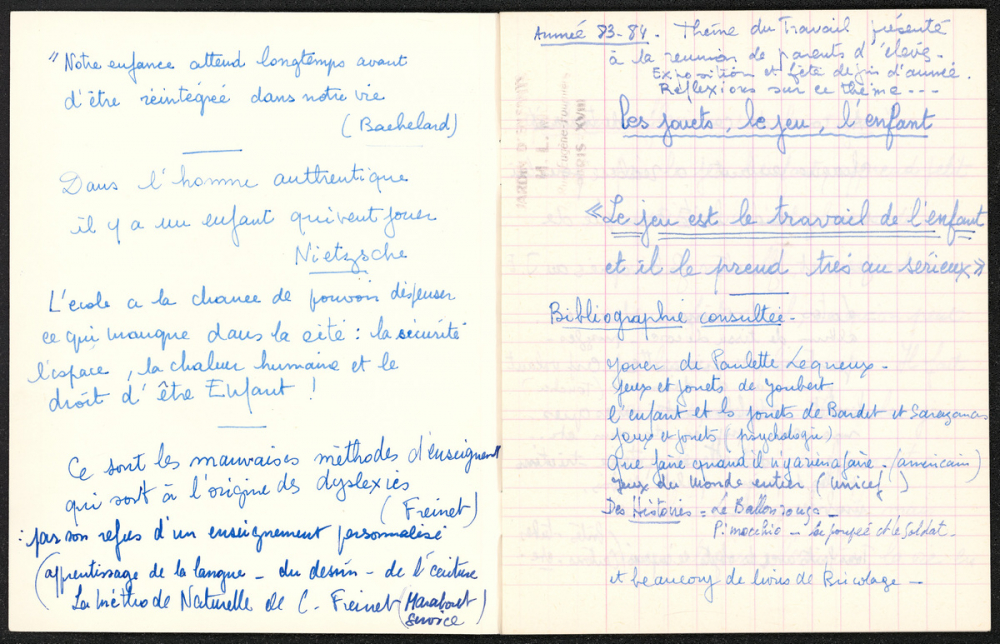 "Notre enfance attend longtemps avant
d'être réintégrée dans notre vie
(Bachelard)
Dans l'homme authentique
il y a un enfant qui veut jouer
Nietzsche
L'école a la chance de pouvoir dispenser
ce qui manque dans la cité : la sécurité
l'espace, la chaleur humaine et le
droit d'être Enfant !
Ce sont les mauvaises méthodes d'enseignent
qui sont à l'origine des dyslexies
(Freinet)
: par son refus d'un enseignement personnalisé
(apprentissage de la langue - du dessin - de l'écriture
La Méthode Naturelle de C. Freinet (Marabout
service)
Année 83-84. Thème du Travail présenté
à la réunion de parents d'élève.
Exposition et fête de fin d'année.
Réflexions sur ce thème ---
Les jouets, le jeu, l'enfant
«Le jeu est le travail de l'enfant
et il le prend très au sérieux»
Bibliographie consultée.
Jouer de Paulette Lequeux.
Jeux et jouets de Joubert
l'enfant et ls jouets de Bandet et Sarazanas
Jeux et jouets (psychologie)
Que faire quand il n'y a rien a faire. (américain)
Jeux du Monde entier (Unicef)
Des Histoires = Le Ballon rouge -
Pinocchio - la poupée et le Soldat.
et beaucoup de livres de Bricolage -
PARIS XVIII